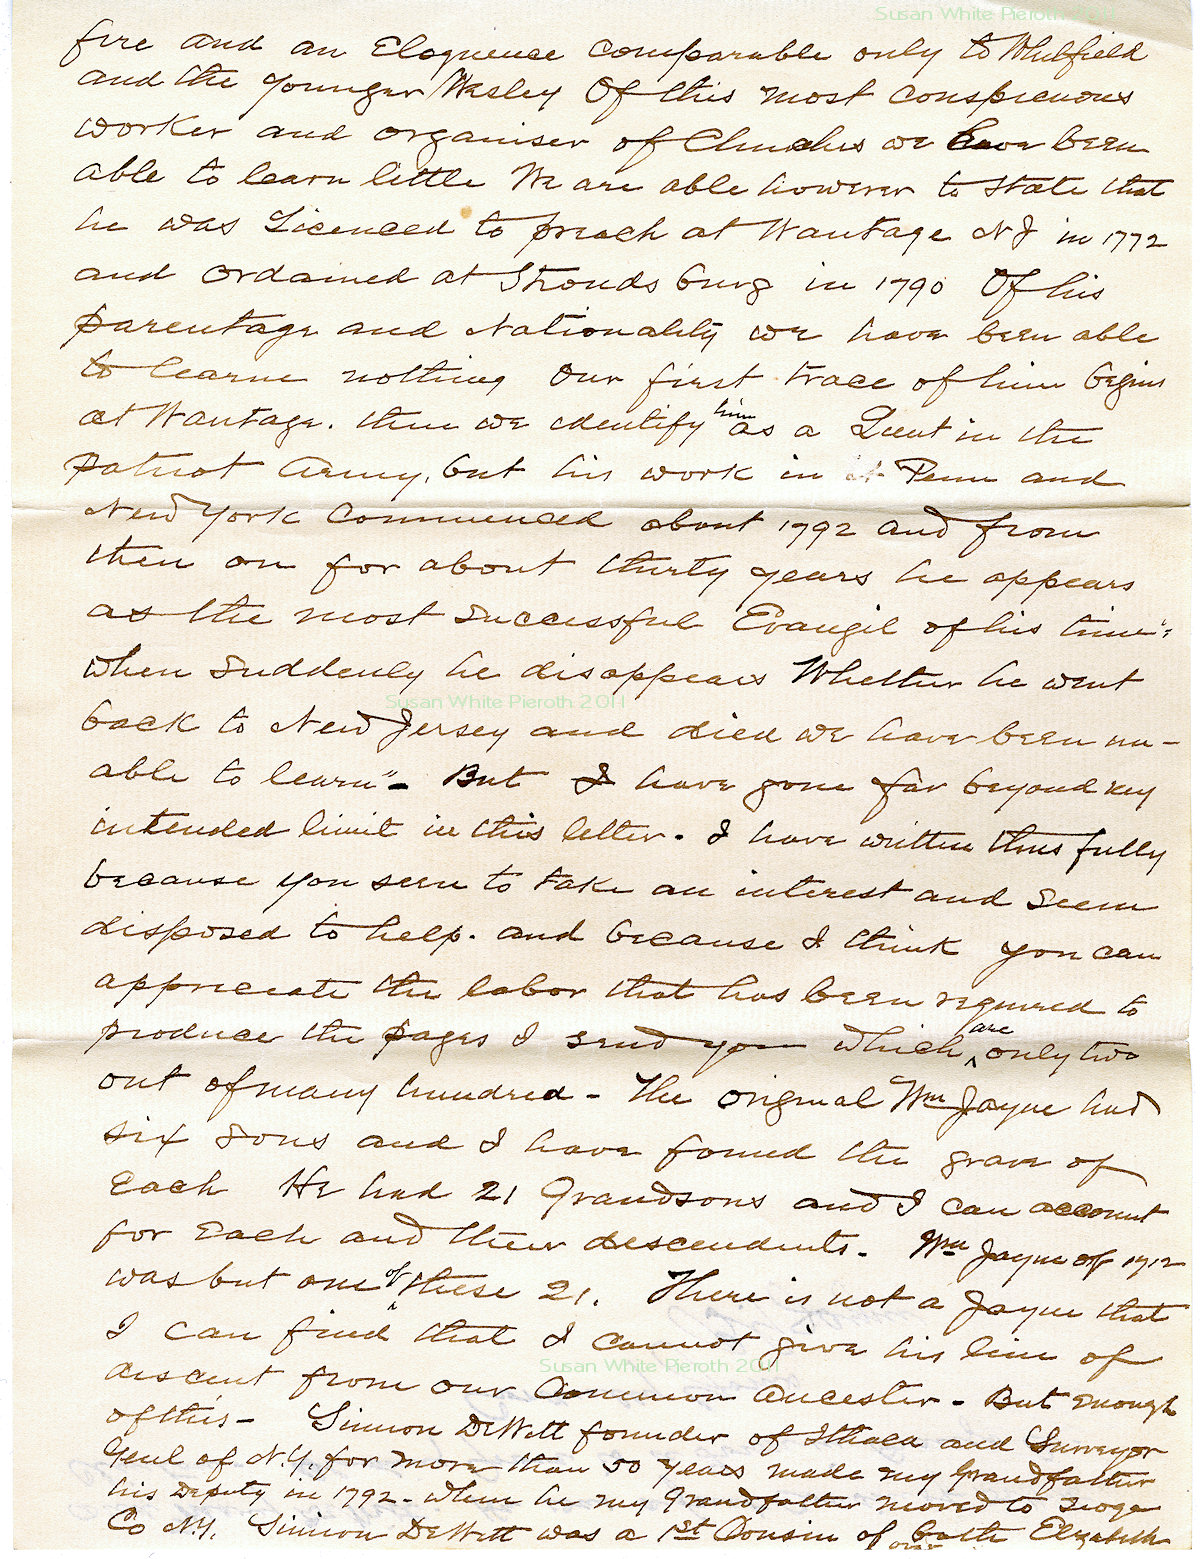 Susan White Pieroth 2011
fire and an Eloquence comparable only to Whitfield
and the younger Wesley Of this most conspicuous
worker and organiser of Churches we have been
able to learn little We are able however to state that
he was Licenced to preach at Wantage N J in 1772
and ordained at Strouds burg in 1790 Of his
parentage and Nationality we have been able
to learne nothing Our first trace of him begins
at Wantage. then we identify him as a Lieut in the
patriot Army, but his work in Penn and
New York commenced about 1792 and from
then on for about thirty years he appears
as the most successful Evangil of his time":
when suddenly he disappears Whether he went
Susan White Pieroth 2011
back to New Jersey and died we have been un-
able to learn"- But I have gone far beyond my
intended limit in this letter. I have written thus fully
because you seem to take an interest and seem
disposed to help. and because I think you can
appreciate the labor that has been required to
produce the pages I send you which are only two
out of many hundred - The original Wm Jayne had
six sons and I have found the grave of
Each He had 21 Grandsons and I can account
for Each and their descendents. Wm Jayne of 1712
was but one of these 21. There is not a Jayne that
I can find that I cannot give his line of
Susan White Pieroth 2011
descent from our Common Ancester - But enough
of this - Simeon DeWitt founder of Ithaca and Surveyor
Genl of N.Y. for more than 50 years made my Grandfather
his Deputy in 1792 - when he my Grandfather moved to Tioga
Co N.Y. Simeon DeWitt was a 1st Cousin of both Elizabeth
our